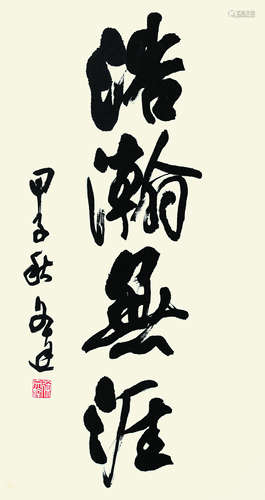 浩瀚無涯
甲子秋